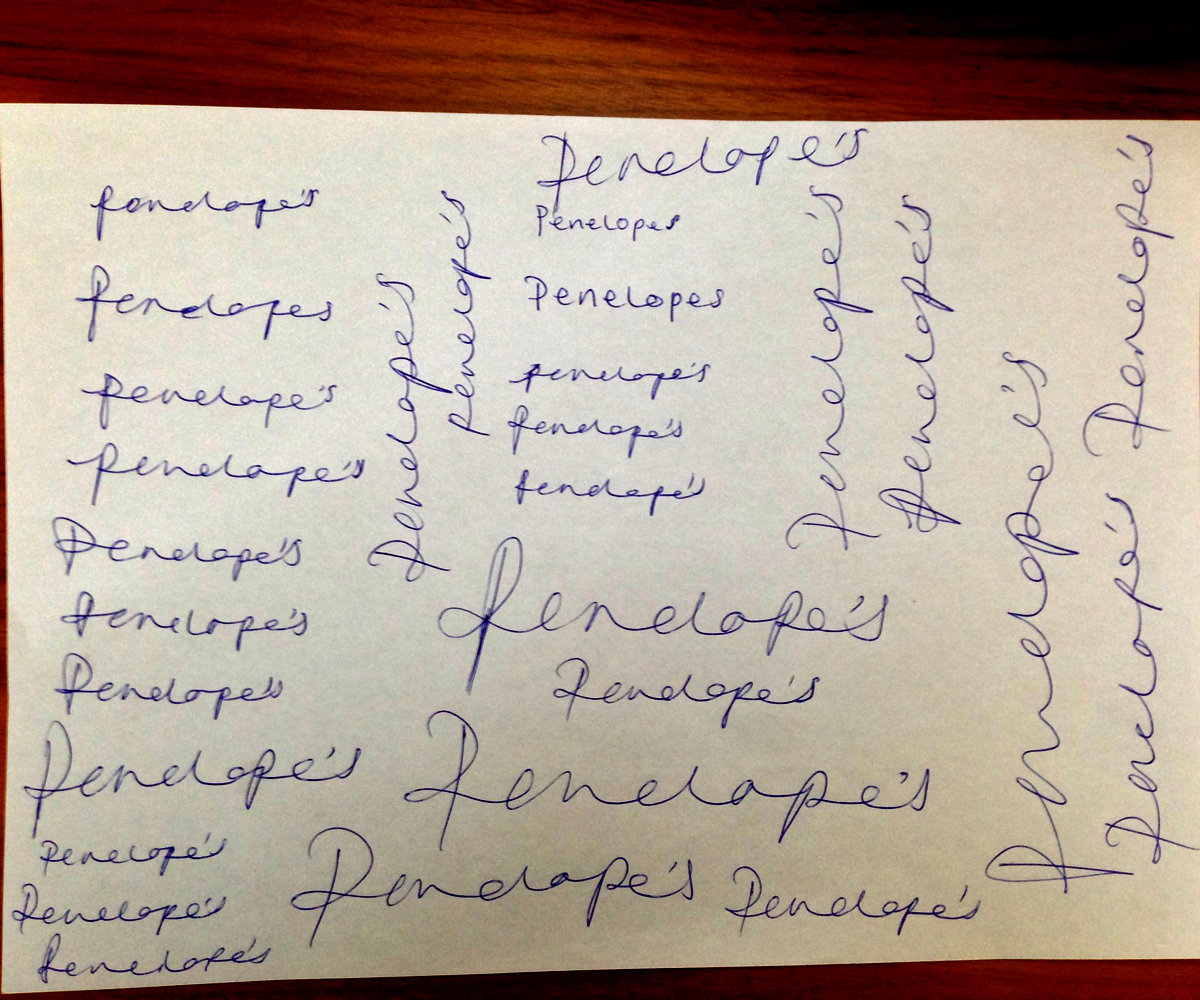 penelope's
Penelopes
penelope's
penelope's
Penelope's
Penelope's
Penelope's
Penelope's
Penelope's
Penelope's
Penelope's
Penelope's
penelope's
Penelope's
Penelopes
Penelopes
penelope's
penelope's
penelope's
Penelope's
Penelope's
Penelope's
Penelope's
Penelope's
Penelope's
Penelope's
Penelope's
Penelope's
Penelope's